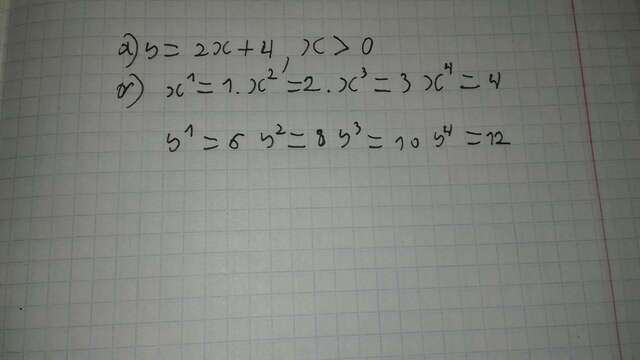 а) y = 2x + 4, x > 0
б) x¹ = 1. x² = 2. x³ = 3 x⁴ = 4
y¹ = 6 y² = 8 y³ = 10 y⁴ = 12